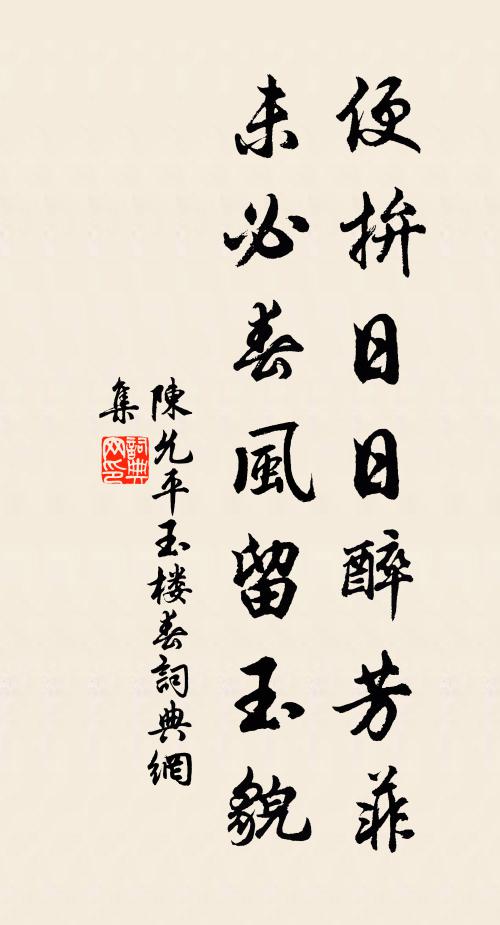 便拚日日醉芳菲
未必春風留玉貌
陳允平玉楼春詞典網
集
詞典网印